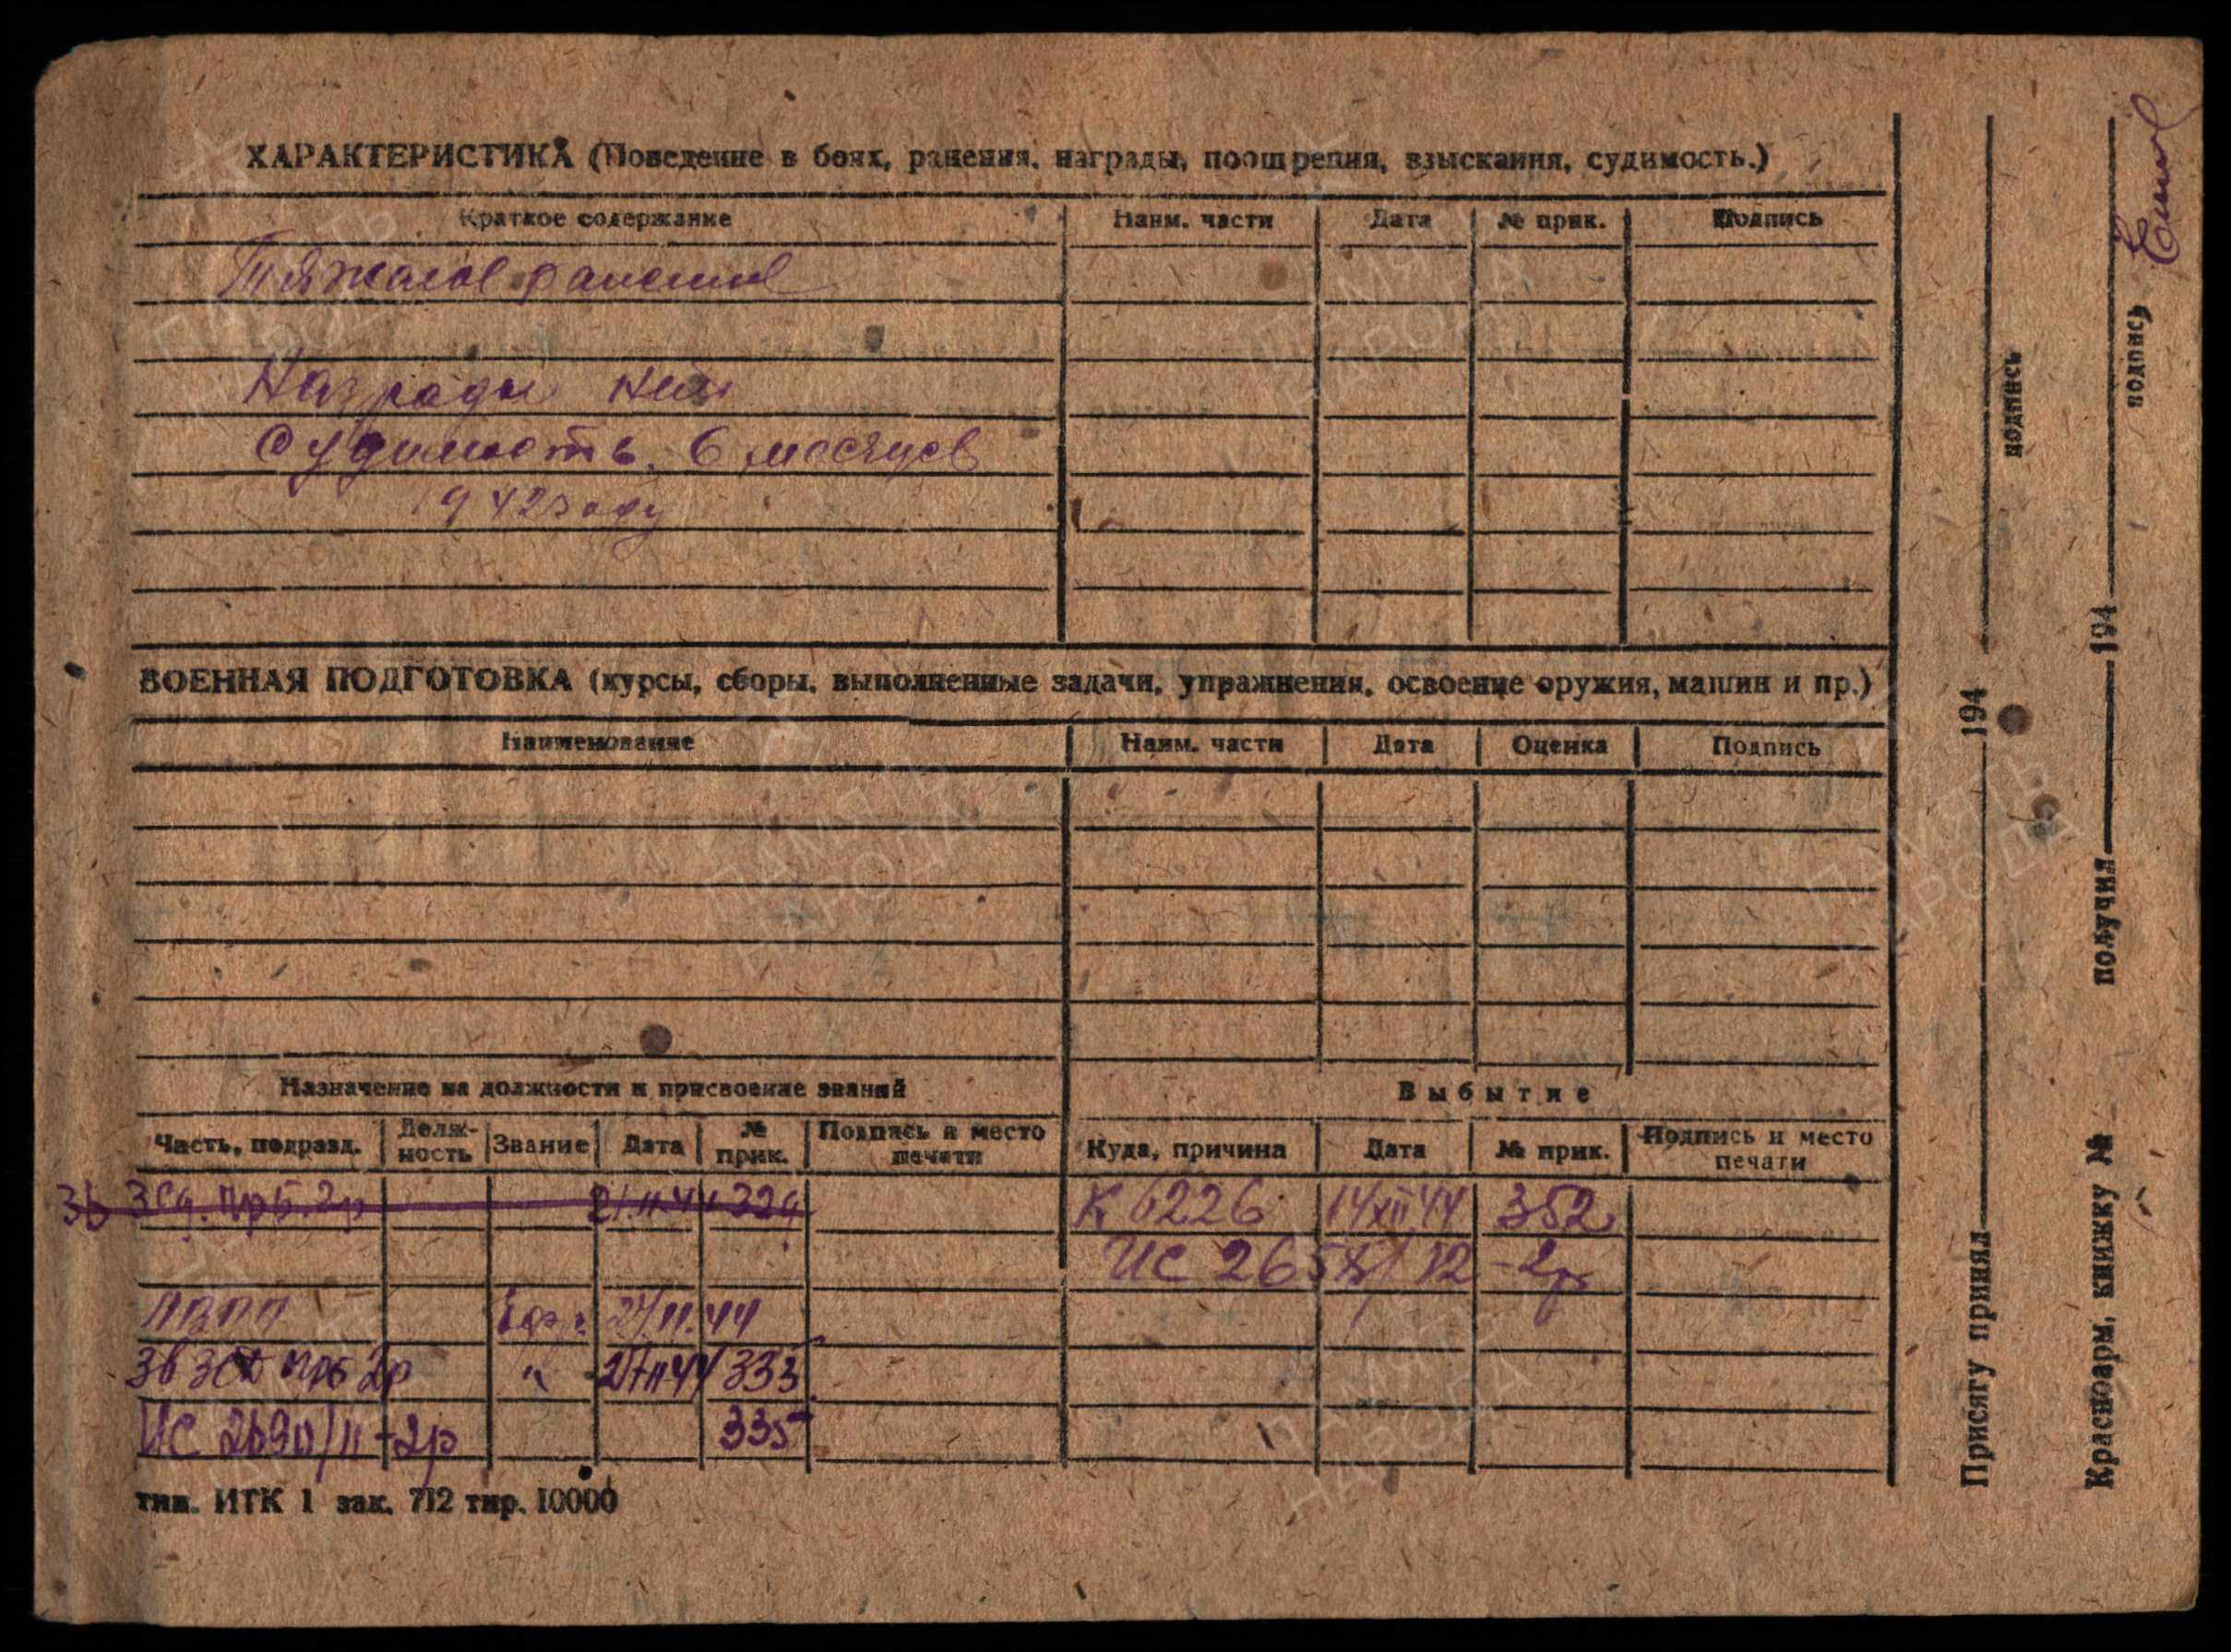 ХАРАКТЕРИСТИКА (Поведение в боях, ранения, награды, поощрения, взыскания, судимость.)
Краткое содержание Наим. части Дата № прик. Подпись
Тяжолое ранение
Награды нет
Судимость. 6 месяцев
1942 году
ВОЕННАЯ ПОДГОТОВКА (курсы, сборы, выполненные задачи, упражнения, освоение оружия, машин и пр.)
Наименование Наим. части Дата Оценка Подпись
Назначение на должности и присвоение званий
Часть, подразд. Долж-ность Звание Дата № прик. Подпись и место печати
3б зсд. прб. 2р 21.11.44 329
ПВПП 27/11.44
3б зсд прб 2р " 27 11 44 333
ИС 2 /11-2р 335
Выбытие
Куда, причина Дата № прик. Подпись и место печати
К 6226 14 XII 44 352
ИС 265 12 -2р
тип. ИТК 1 зак. 712 тир. 10000
Присягу принял 194 подпись
Красноарм. книжку № получил 194 подпись
ПАМЯТЬ НАРОДА